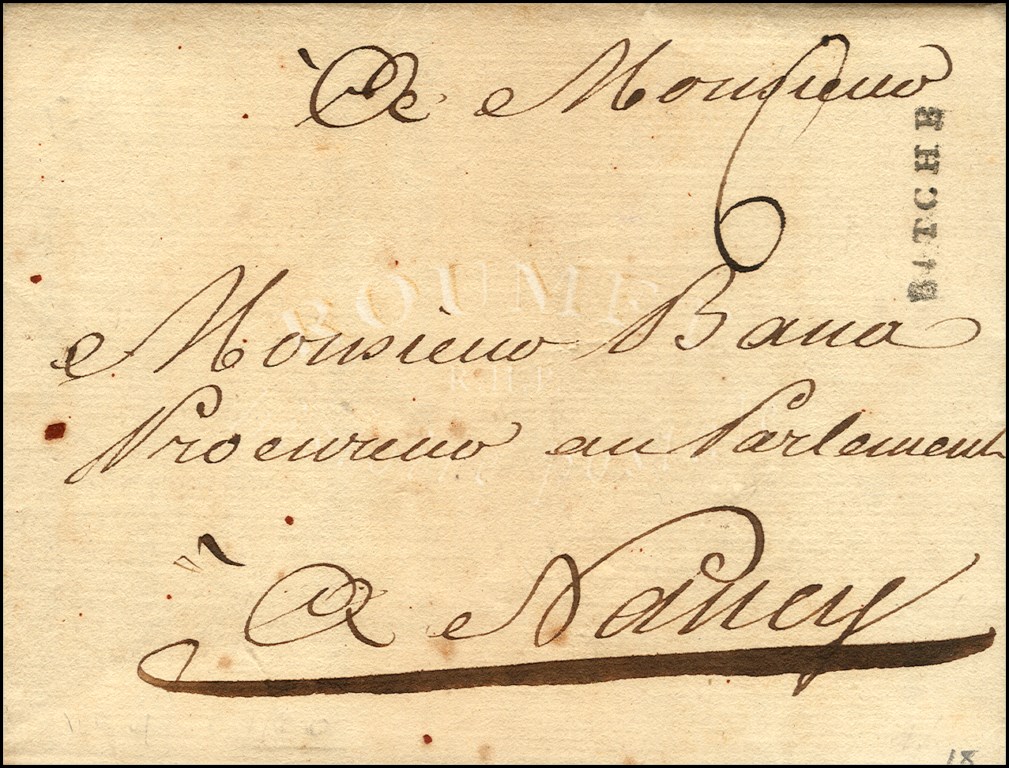 À Monsieur
6
BITCHE
Monsieur Bana
Procureur au Parlement
À Nancy
ROUMET
18